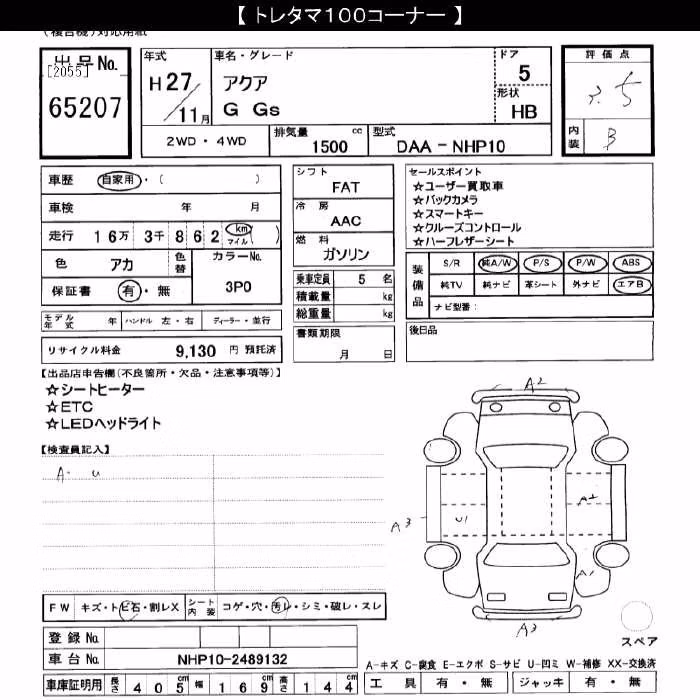 【 トレタマ100コーナー 】
(複合機)対応用紙
出品No.
[2055]
65207
年式
H27/11月
車名・グレード
アクア
G Gs
ドア
5
形状
HB
評価点
3.5
内装
B
2WD・4WD
排気量 cc
1500
型式
DAA-NHP10
車歴 自家用・( )
車検 年 月
走行 16万 3千 862 km マイル ( )
色 アカ
色替
カラーNo.
3P0
保証書 有・無
モデル年式 年
ハンドル 左・右
ディーラー・並行
リサイクル料金 9,130 円 預託済
シフト
FAT
冷房
AAC
燃料
ガソリン
乗車定員 5 名
積載量 kg
総重量 kg
書類期限
月 日
セールスポイント
☆ユーザー買取車
☆バックカメラ
☆スマートキー
☆クルーズコントロール
☆ハーフレザーシート
装備品
S/R 純A/W P/S P/W ABS
純TV 純ナビ 革シート 外ナビ エアB
ナビ型番:
後日品
【出品店申告欄(不良箇所・欠品・注意事項等)】
☆シートヒーター
☆ETC
☆LEDヘッドライト
【検査員記入】
A・U
A2
A3
U1
A2
A1
A3
FW キズ・トビ石・割レX
シート内装 コゲ・穴・汚レ・シミ・破レ・スレ
登録No.
車台No. NHP10-2489132
車庫証明用 長さ 405cm 幅 169cm 高さ 144cm
スペア
A-キズ C-腐食 E-エクボ S-サビ U-凹ミ W-補修 XX-交換済
工具 有・無 ジャッキ 有・無